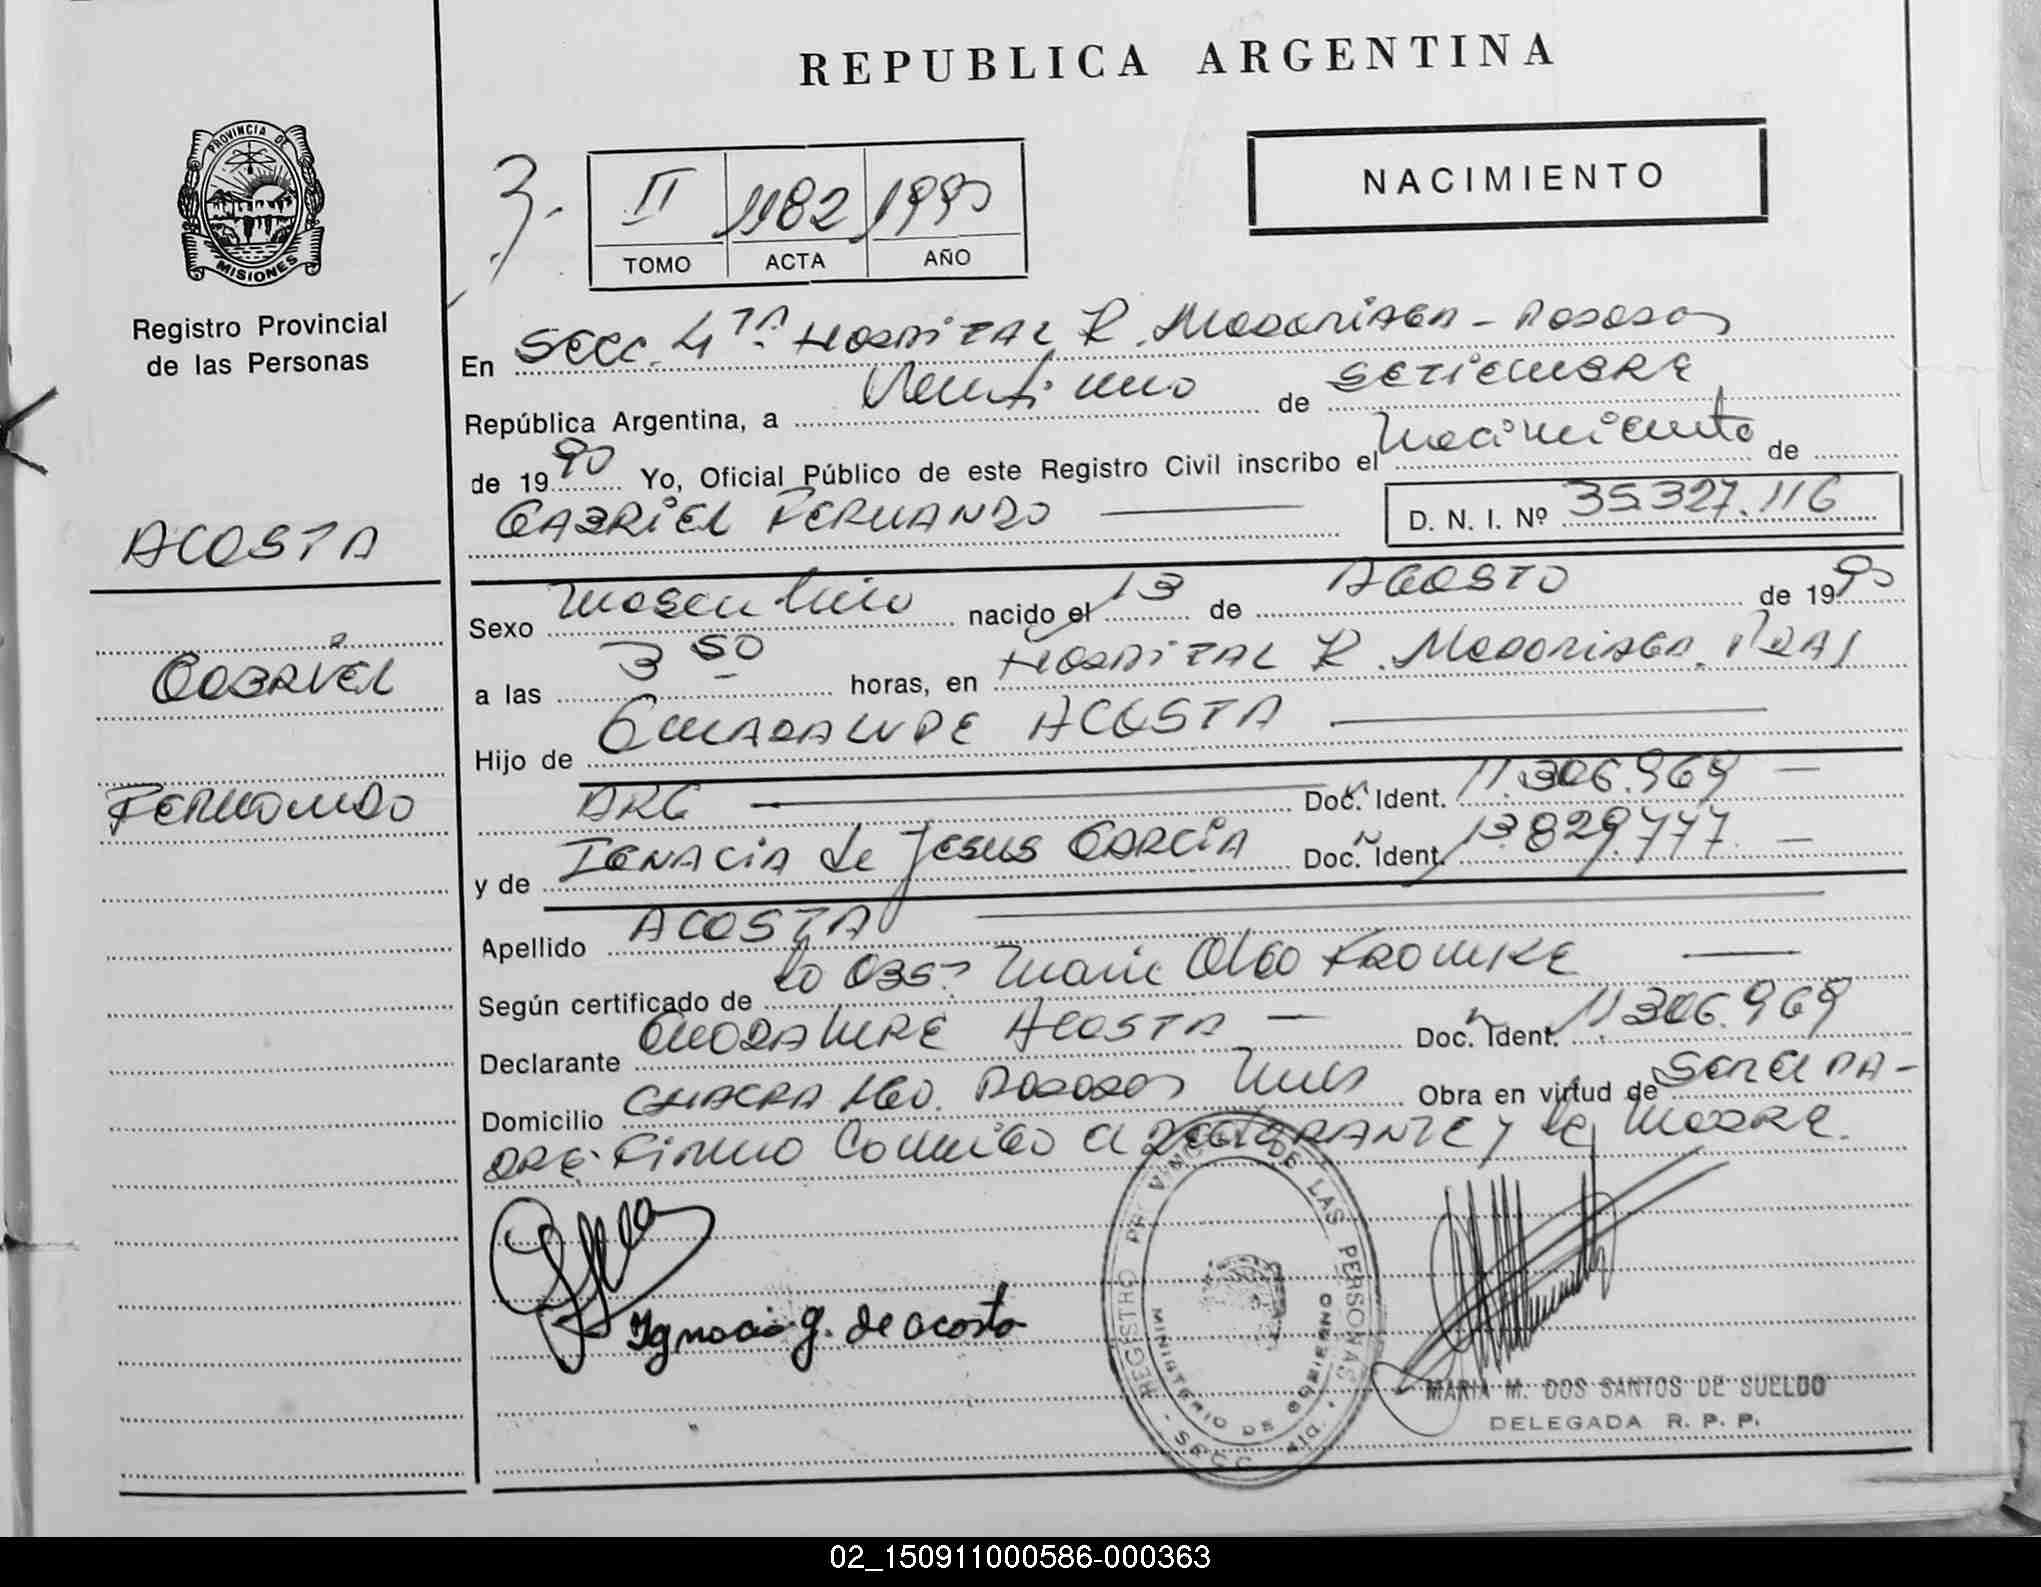 REPUBLICA ARGENTINA
PROVINCIA DE
MISIONES
Registro Provincial
de las Personas
NACIMIENTO
3.
II 1182 1990
TOMO ACTA AÑO
En SECC. 4TA HOSPITAL R. MADARIAGA - POSADAS
República Argentina, a Veintiuno de SETIEMBRE
de 1990 Yo, Oficial Público de este Registro Civil inscribo el Nacimiento de
GABRIEL FERNANDO D. N. I. Nº 35.327.116
ACOSTA
GABRIEL
FERNANDO
Sexo Masculino nacido el 13 de AGOSTO de 1990
a las 3 50 horas, en HOSPITAL R. MADARIAGA.
Hijo de GUADALUPE ACOSTA
ARG Doc. Ident. 11.306.969 -
y de IGNACIA de JESUS GARCIA Doc. Ident. 13.829.777. -
Apellido ACOSTA
Según certificado de la OBS. Maria Olga KROMKE
Declarante GUADALUPE ACOSTA - Doc. Ident. 11.306.969
Domicilio CHACRA 160. POSADAS Mnes Obra en virtud de SER EL PA-
DRE. Firma Conmigo el DECLARANTE y la MADRE.
Ignacia g. de acosta
REGISTRO PROVINCIAL DE LAS PERSONAS
MINISTERIO DE GOBIERNO
SECC
MARIA M. DOS SANTOS DE SUELDO
DELEGADA R. P. P.
02_150911000586-000363